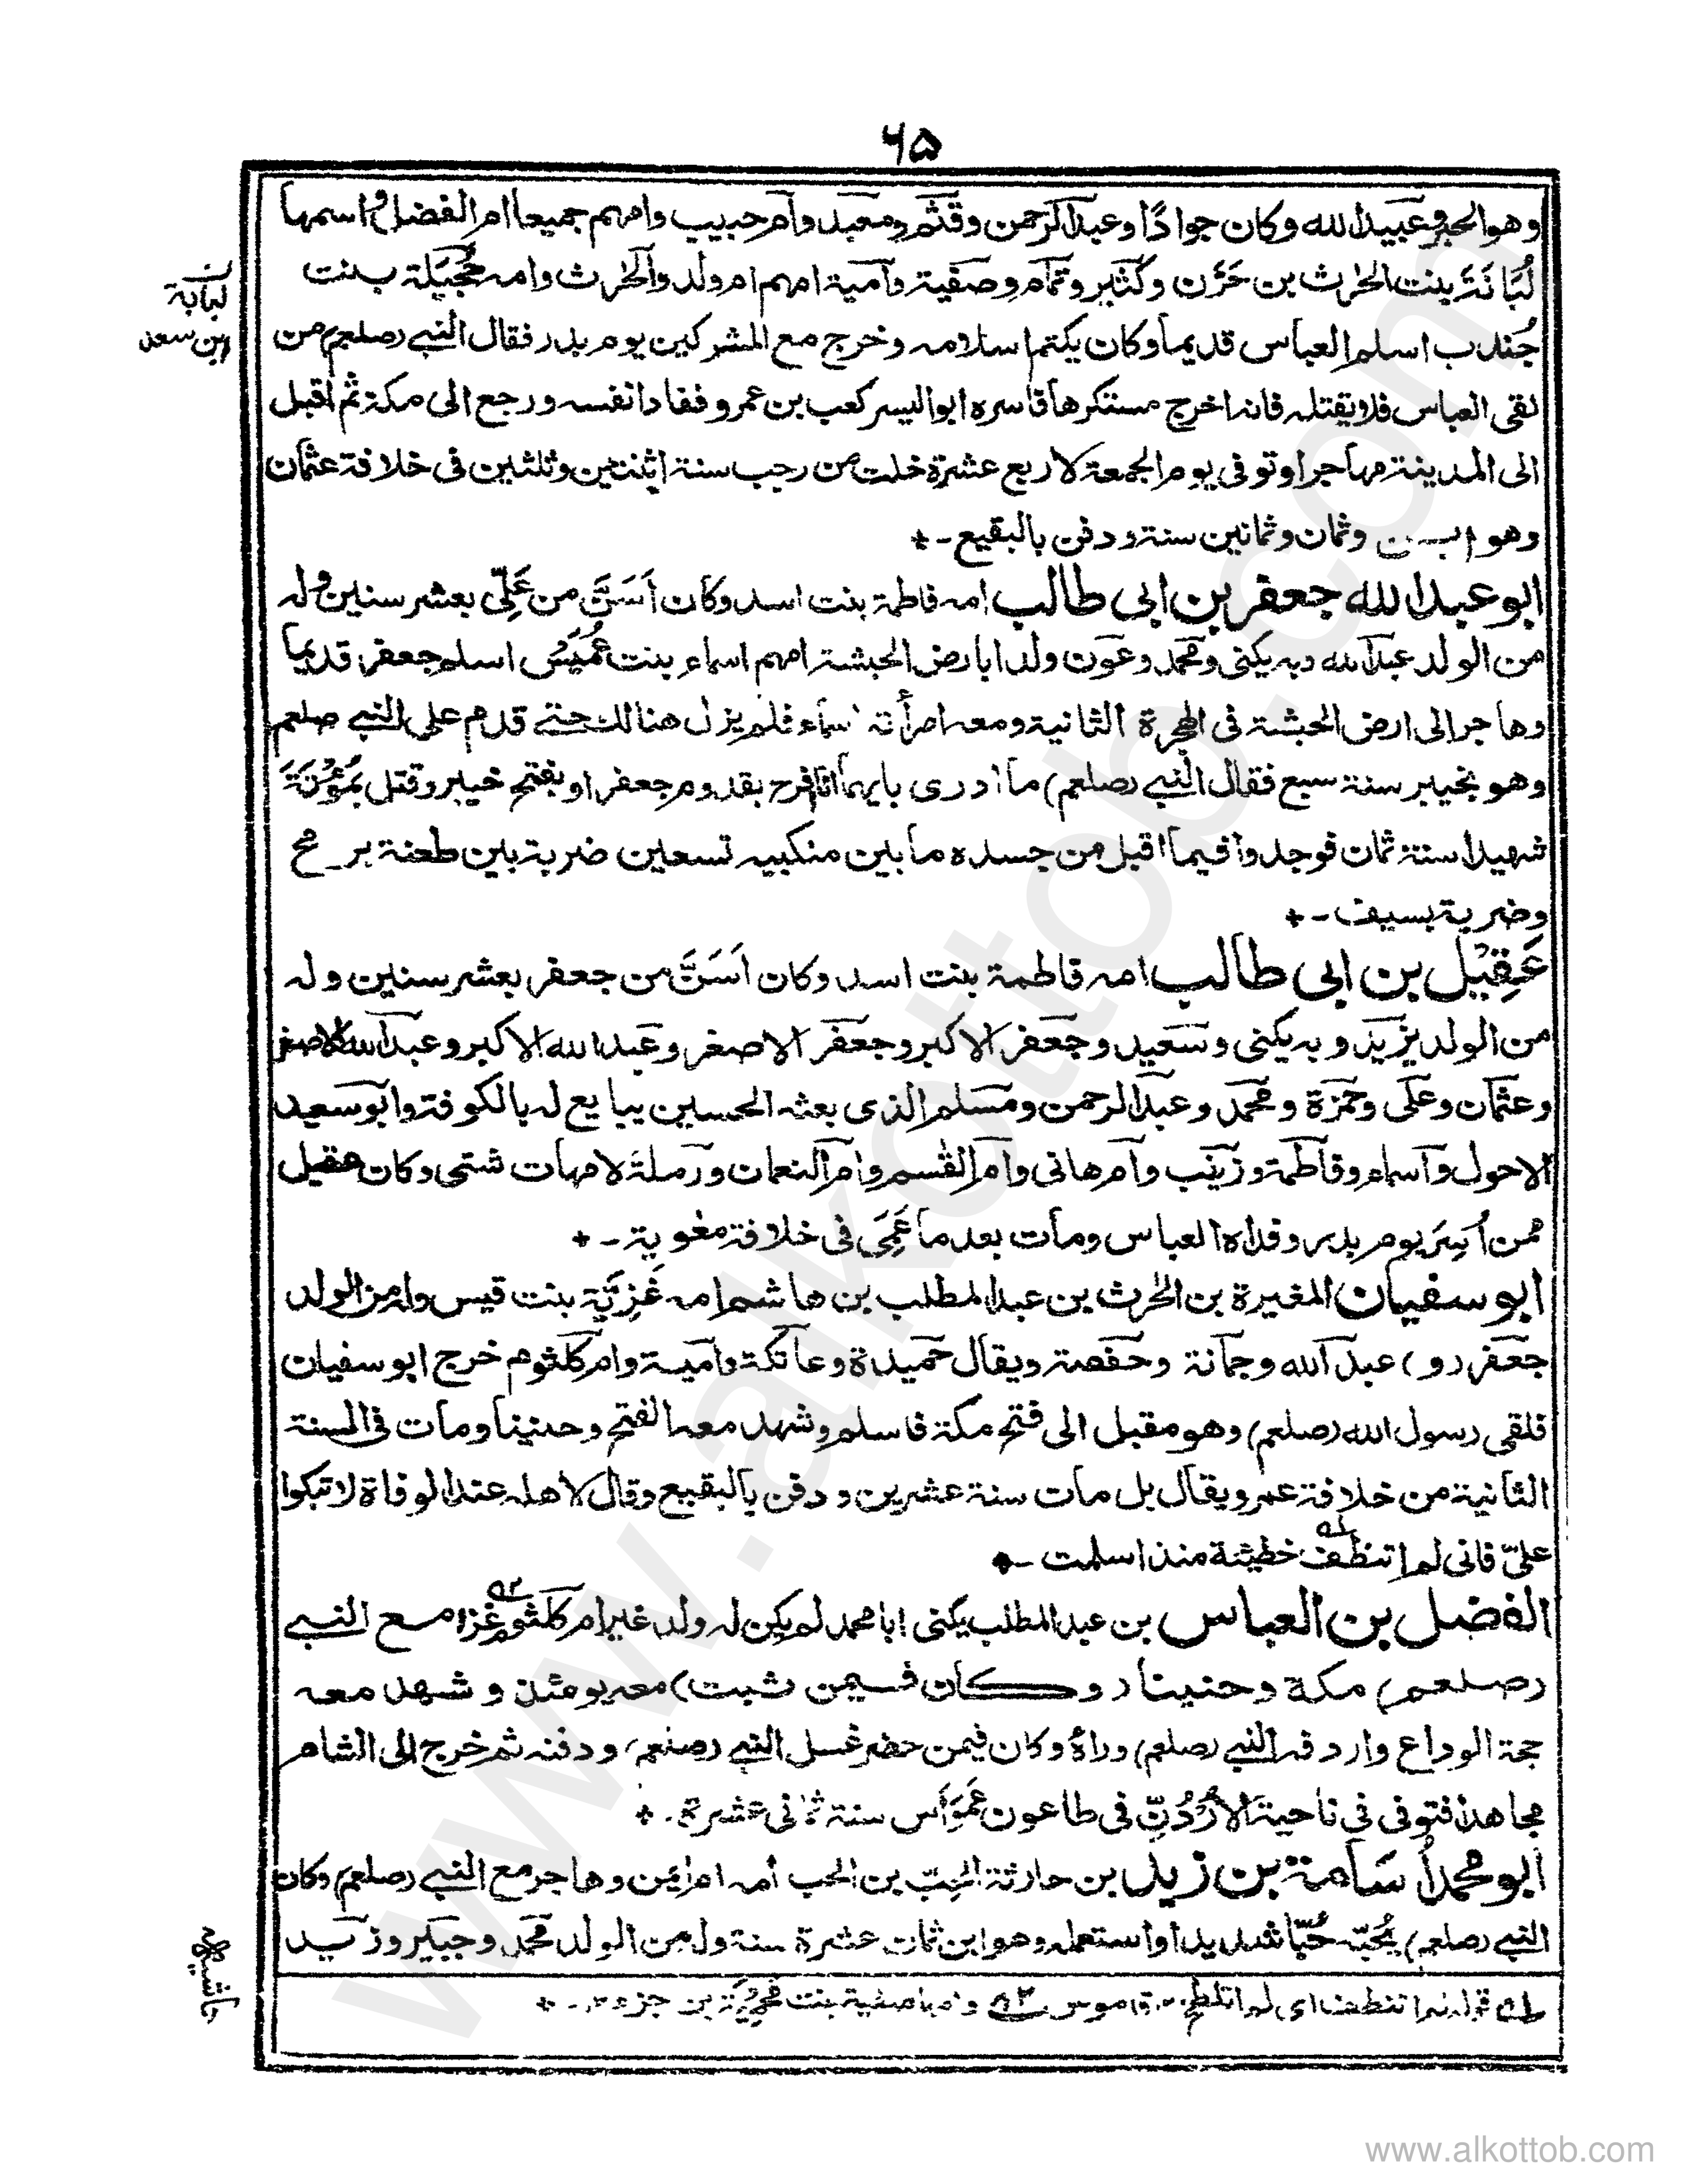 ۶۵
وهو الحبر وعبيد الله وكان جوادًا وعبد الرحمن وقثم ومعبد وام حبيب وامهم جميعا ام الفضل واسمها
لُبَانَة بنت الحٰرث بن حَزَن وكثير وتمام وصفية واُمية امهم ام ولد والحٰرث وامه حُجَيلة بنت
جُندب اسلم العباس قديما وكان يكتم اسلامه وخرج مع المشركين يوم بدر فقال النبي (صلعم) من
لقى العباس فلا يقتله فانه اخرج مستكرها فاسره ابو اليسر كعب بن عمرو ففادا نفسه ورجع الى مكة ثم اقبل
الى المدينة مهاجرا وتوفى يوم الجمعة لاربع عشرة خلت من رجب سنة اثنتين وثلثين فى خلافة عثمان
وهو ابن وثمان وثمانين سنة ودفن بالبقيع - *
ابو عبد الله جعفر بن ابى طالب امه فاطمة بنت اسد وكان اَسَنَّ من عَلِّى بعشر سنين وله
من الولد عبد الله وبه يكنى ومحمد وعون ولدا بارض الحبشة امهم اسماء بنت عُمَيْس اسلم جعفر قديما
وهاجر الى ارض الحبشة فى الهجرة الثانية ومعه امرأته اسماء فلم يزل هنالك حتے قدم على النبي صلعم
وهو بخيبر سنة سبع فقال النبي (صلعم) ما ادرى بايهما انا افرح بقدوم جعفر او بفتح خيبر وقتل بمُؤْتَةَ
شهيدا سنة ثمان فوجدوا فيما اقبل من جسده ما بين منكبيه تسعين ضربة بين طعنة برمح
وضربة بسيف - *
عَقِيْل بن ابى طالب امه فاطمة بنت اسد وكان اَسَنَّ من جعفر بعشر سنين وله
من الولد يزيد وبه يكنى وسعيد وجعفر الاكبر وجعفر الاصغر وعبد الله الاكبر وعبد الله الاصغر
وعثمان وعلى وحمزة ومحمد وعبد الرحمن ومسلم الذى بعثه الحسين يبايع له بالكوفة وابو سعيد
الاحول واسماء وفاطمة وزينب وام هانى وام القٰسم وام النعمان ورملة لامهات شتى وكان عقيل
ممن اُسِرَ يوم بدر وفداه العباس ومات بعد ما عَمِىَ فى خلافة معٰوية - *
ابو سفيان المغيرة بن الحٰرث بن عبد المطلب بن هاشم امه غَزِيَّة بنت قيس وله من الولد
جعفر (و) عبد الله وجمانة وحفصة ويقال حميدة وعاتكة وامية وام كلثوم خرج ابو سفيان
فلقى رسول الله (صلعم) وهو مقبل الى فتح مكة فاسلم وشهد معه الفتح وحنينا ومات فى السنة
الثانية من خلافة عمر ويقال بل مات سنة عشرين ودفن بالبقيع وقال لاهله عند الوفاة لا تبكوا
علىّ فانى لم اتنظف خطيئة منذ اسلمت - *
الفضل بن العباس بن عبد المطلب يكنى ابا محمد لم يكن له ولد غير ام كلثوم غزا مع النبي
(صلعم) مكة وحنينا (وكان فيمن ثبت) معه يومئذ وشهد معه
حجة الوداع واردفه النبي (صلعم) وراءه وكان فيمن حضر غسل النبي (صلعم) ودفنه ثم خرج الى الشام
مجاهدا فتوفى فى ناحية الاُرْدُنِّ فى طاعون عَمَوَاس سنة ثمانى عشرة - *
ابو محمد اُسَامة بن زيد بن حارثة الحِبّ بن الحب امه ام ايمن وهاجر مع النبي (صلعم) وكان
النبي (صلعم) يُحبّه حُبّا شديدا واستعمله وهو ابن ثمان عشرة سنة وله من الولد محمد وجبير وزيد
لبابة
ابن سعد
حاشيه
له قوله لم اتنظف اى لم اتلطخ ١٢ قاموس ٥٢ وامها صفية بنت مَحْمِيَّة بن جزء ١٢ - *
www.alkottob.com